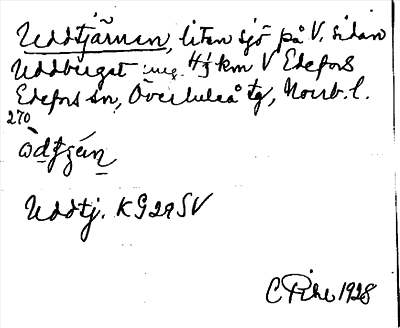 Uddtjärnen, liten sjö på V. sidan
Uddberget ung. 4½ km V Edefors
Edefors sn, Överluleå tg, Norrb. l.
270
Uddtj. KG29SV
C Pihl 1928